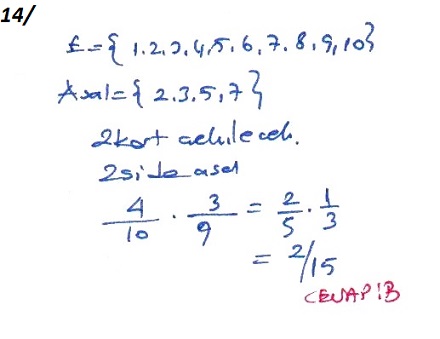 14/
E={1.2.3.4,5.6,7.8,9,10}
Asal={2.3.5,7}
2kart çekilecek.
2side asal
4/10 . 3/9 = 2/5 . 1/3
= 2/15
CEVAP:B